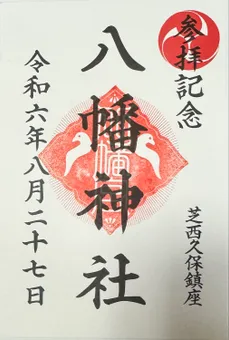 参拝記念
芝西久保鎮座
八幡神社
令和六年八月二十七日